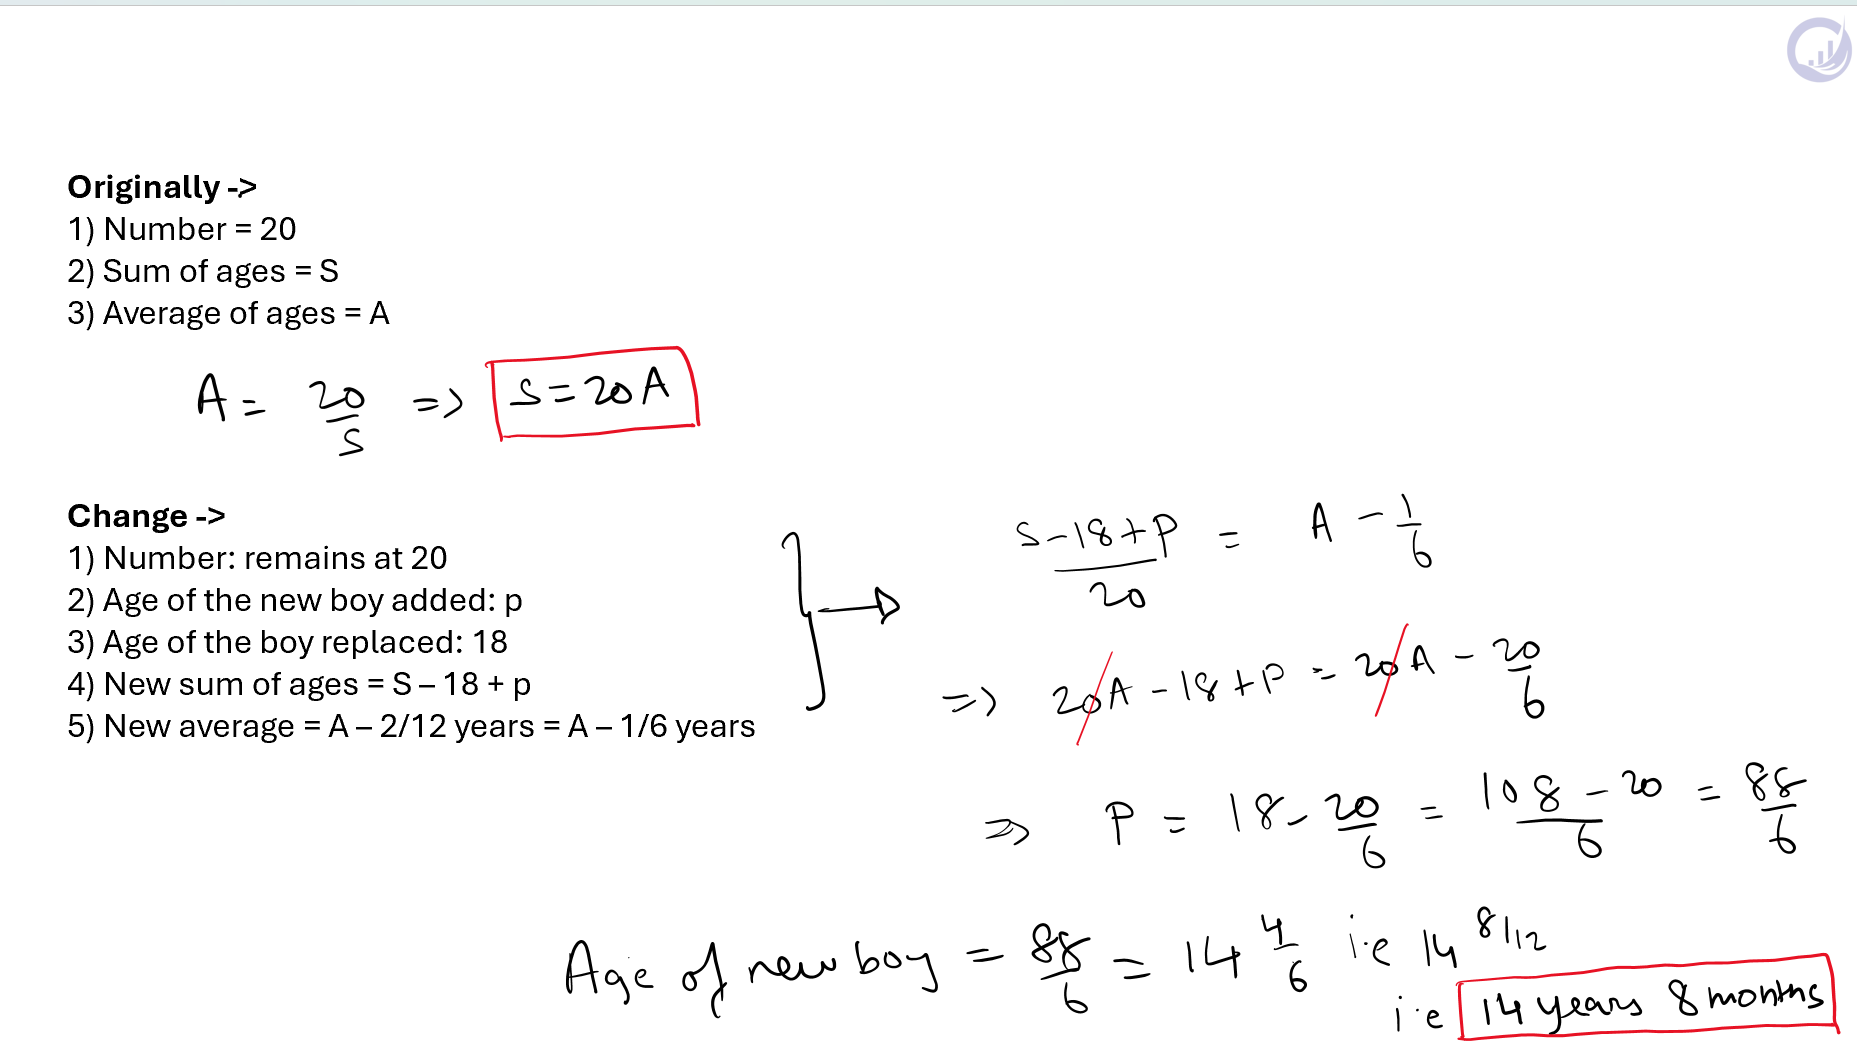 Originally ->
1) Number = 20
2) Sum of ages = S
3) Average of ages = A
A = 20/S => S = 20A
Change ->
1) Number: remains at 20
2) Age of the new boy added: p
3) Age of the boy replaced: 18
4) New sum of ages = S – 18 + p
5) New average = A – 2/12 years = A – 1/6 years
(S-18+P)/20 = A - 1/6
=> 20A - 18 + P = 20A - 20/6
=> P = 18 - 20/6 = (108-20)/6 = 88/6
Age of new boy = 88/6 = 14 4/6 i.e 14 8/12
i.e 14 years 8 months